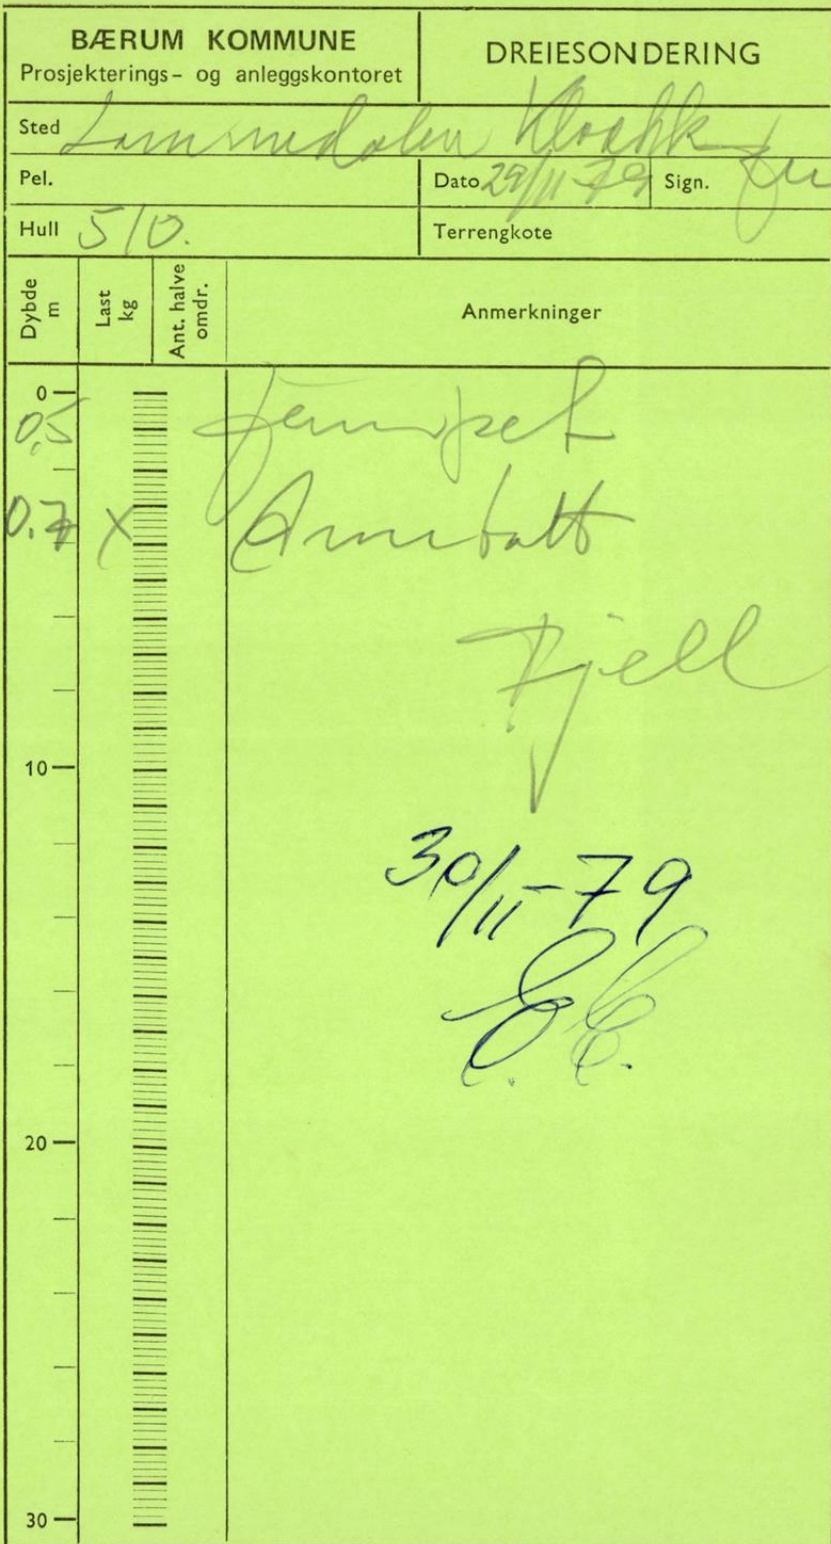 BÆRUM KOMMUNE
Prosjekterings- og anleggskontoret
DREIESONDERING
Sted Lommedalen Kloakk
Pel.
Dato 29/11-79 Sign.
Hull 510.
Terrengkote
Dybde m
Last kg
Ant. halve omdr.
Anmerkninger
0
0,5
0.7 X
Fjell
10
30/11-79
20
30